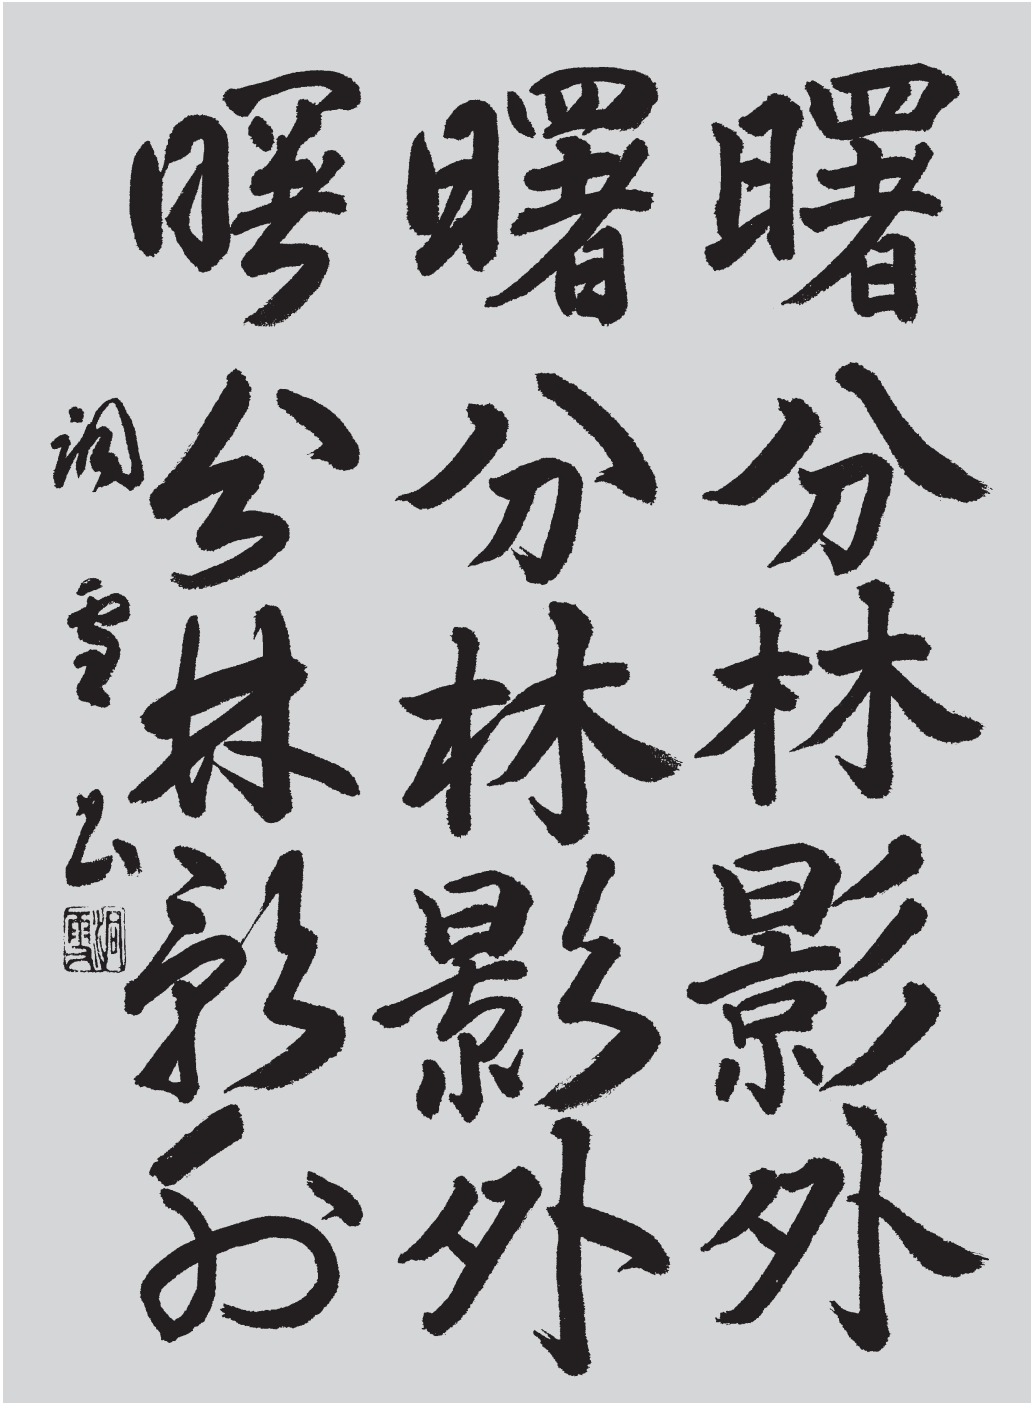 曙分林影外
曙分林影外
曙分林影外
洞雪書
洞雪